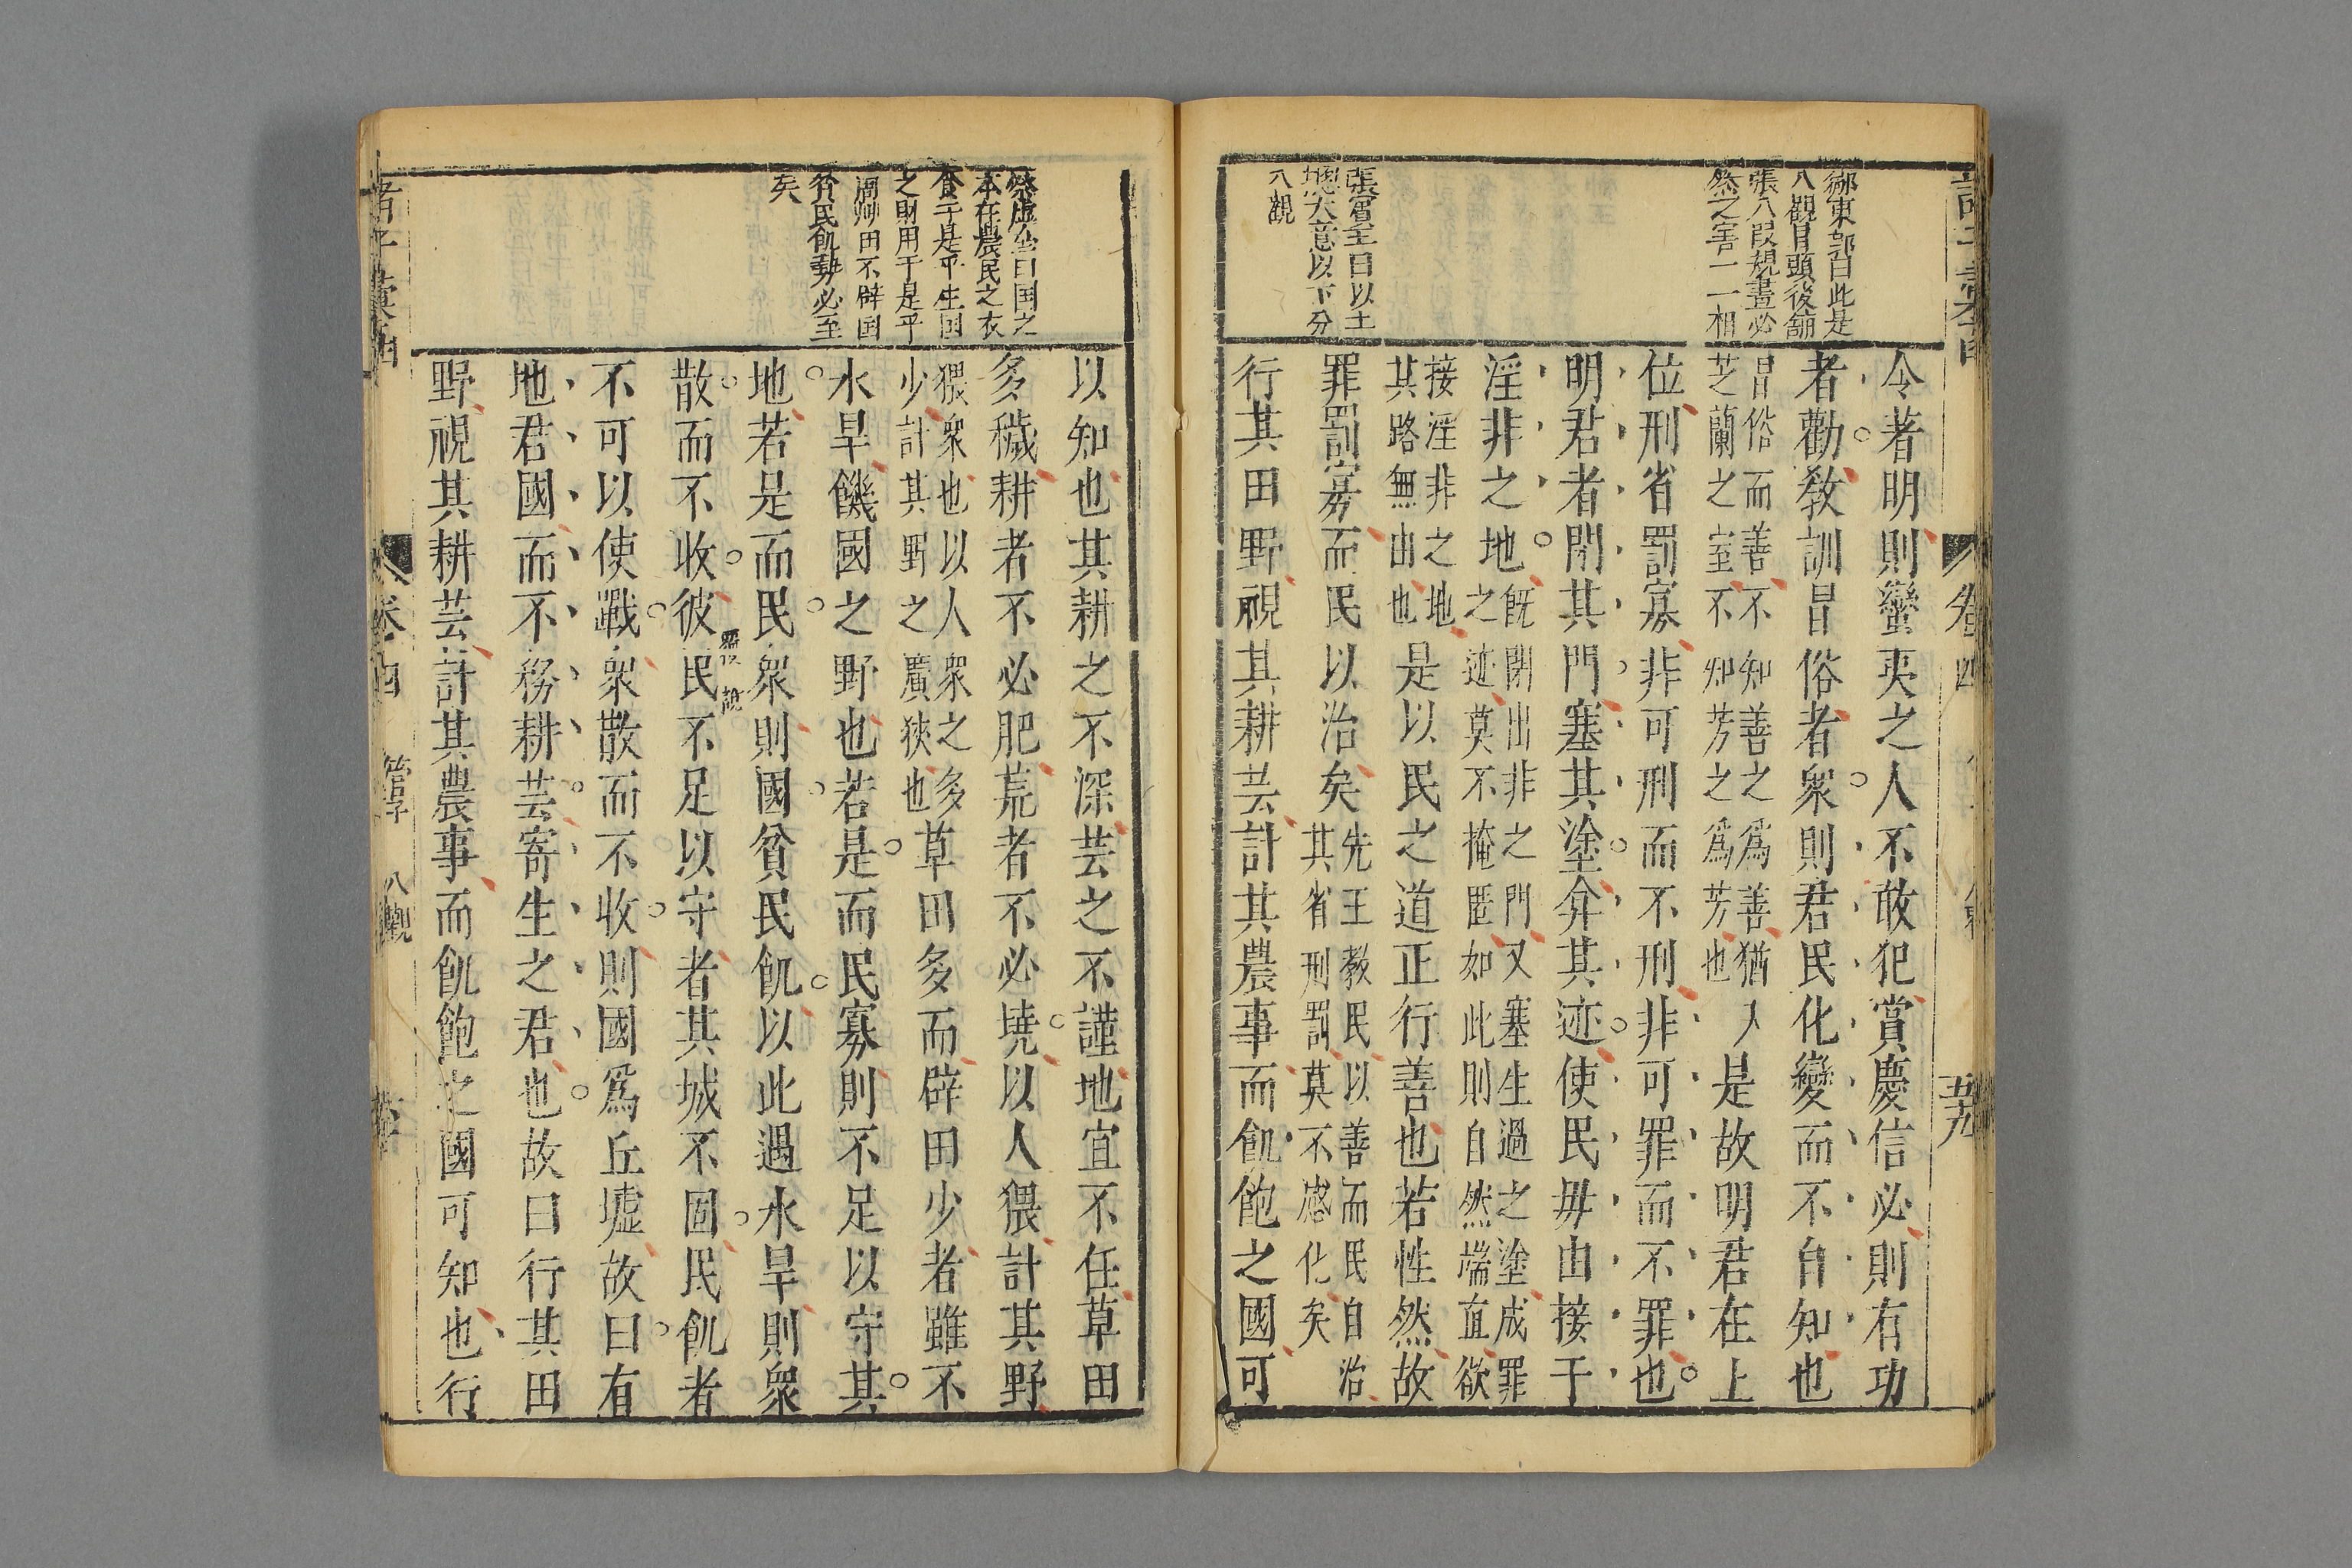 鄒東郭曰此是
八觀冐頭後舖
張八段規畫必
然之害一一相
張賔王曰以上
總大意以下分
八觀
令著明則蠻夷之人不敢犯賞慶信必則有功
者勸教訓冐俗者衆則君民化變而不自知也
冐俗而善不知善之爲善猶入
芝蘭之室不知芳之爲芳也
是故明君在上
位刑省罰寡非可刑而不刑非可罪而不罪也
明君者閉其門塞其塗弇其迹使民毋由接于
淫非之地
既閉出非之門又塞生過之塗成罪
之迹莫不掩匿如此則自然端直欲
接淫非之地
其路無由也
是以民之道正行善也若性然故
罪罰寡而民以治矣
先王教民以善而民自治
其省刑罰莫不感化矣
行其田野視其耕芸計其農事而飢飽之國可
卷四
五九
曰国之
本在農民之衣
食于是乎生国
之財用于是乎
田不辟国
貧民飢勢必至
矣
以知也其耕之不深芸之不謹地宜不任草田
多穢耕者不必肥荒者不必墝以人猥計其野
猥衆也以人衆之多
少計其野之廣狹也
草田多而辟田少者雖不
水旱饑國之野也若是而民寡則不足以守其
地若是而民衆則國貧民飢以此遇水旱則衆
散而不收彼民不足以守者其城不固民飢者
不可以使戰衆散而不收則國爲丘墟故曰有
地君國而不務耕芸寄生之君也故曰行其田
野視其耕芸計其農事而飢飽之國可知也行
卷四
管子
八觀